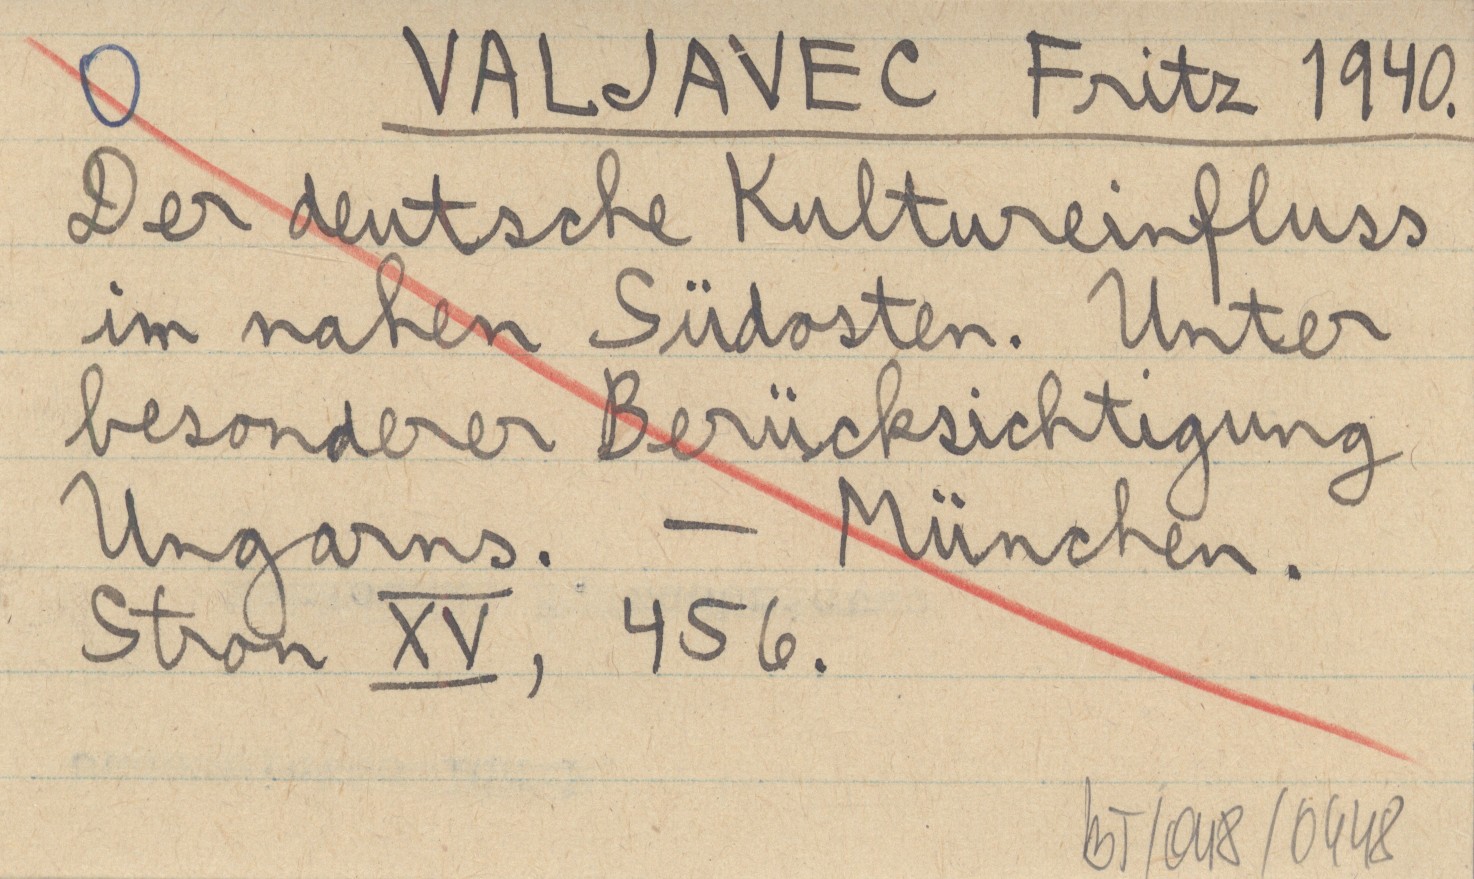 O VALJAVEC Fritz 1940.
Der deutsche Kultureinfluss
im nahen Südosten. Unter
besonderer Berücksichtigung
Ungarns. — München.
Stron XV, 456.
BT/048/0448